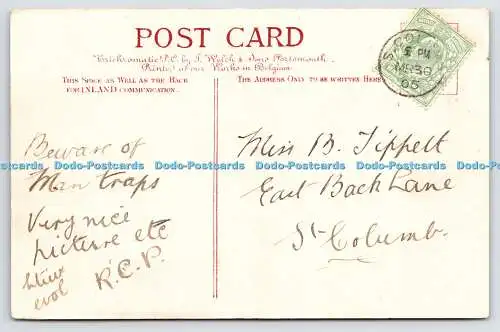 POST CARD
Artichromatic P.C. by J. Welch & Sons Portsmouth.
Printed at our Works in Belgium.
THIS SPACE AS WELL AS THE BACK
FOR INLAND COMMUNICATION.
THE ADDRESS ONLY TO BE WRITTEN HERE
ST. COLUMB
5 PM
MR 30
05
Beware of
Man traps
Very nice
picture etc
R.C.P.
Miss B. Tippett
East Back Lane
St Columb.
Dodo-Postcards Dodo-Postcards Dodo-Postcards Dodo-Postcards Dodo-Postcards Dodo-Postcards